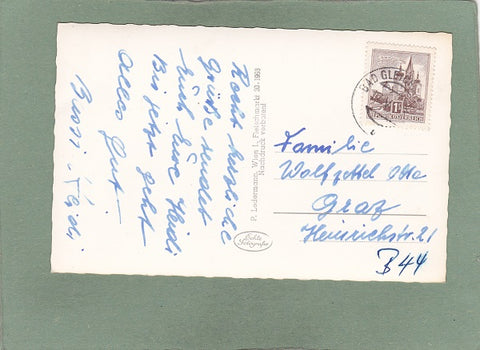 Recht herzliche
Grüße sendet
Euch Eure Heidi
Bis jetzt geht
alles gut.
Bussi Heidi.
P. Ledermann, Wien I., Fleischmarkt 20. 1993
Nachdruck verboten!
Echte
Fotografie
BAD GLEI
1S
REPUBLIK ÖSTERREICH
Familie
Wolfgettel Otto
Graz
Heinrichstr. 21
B 44